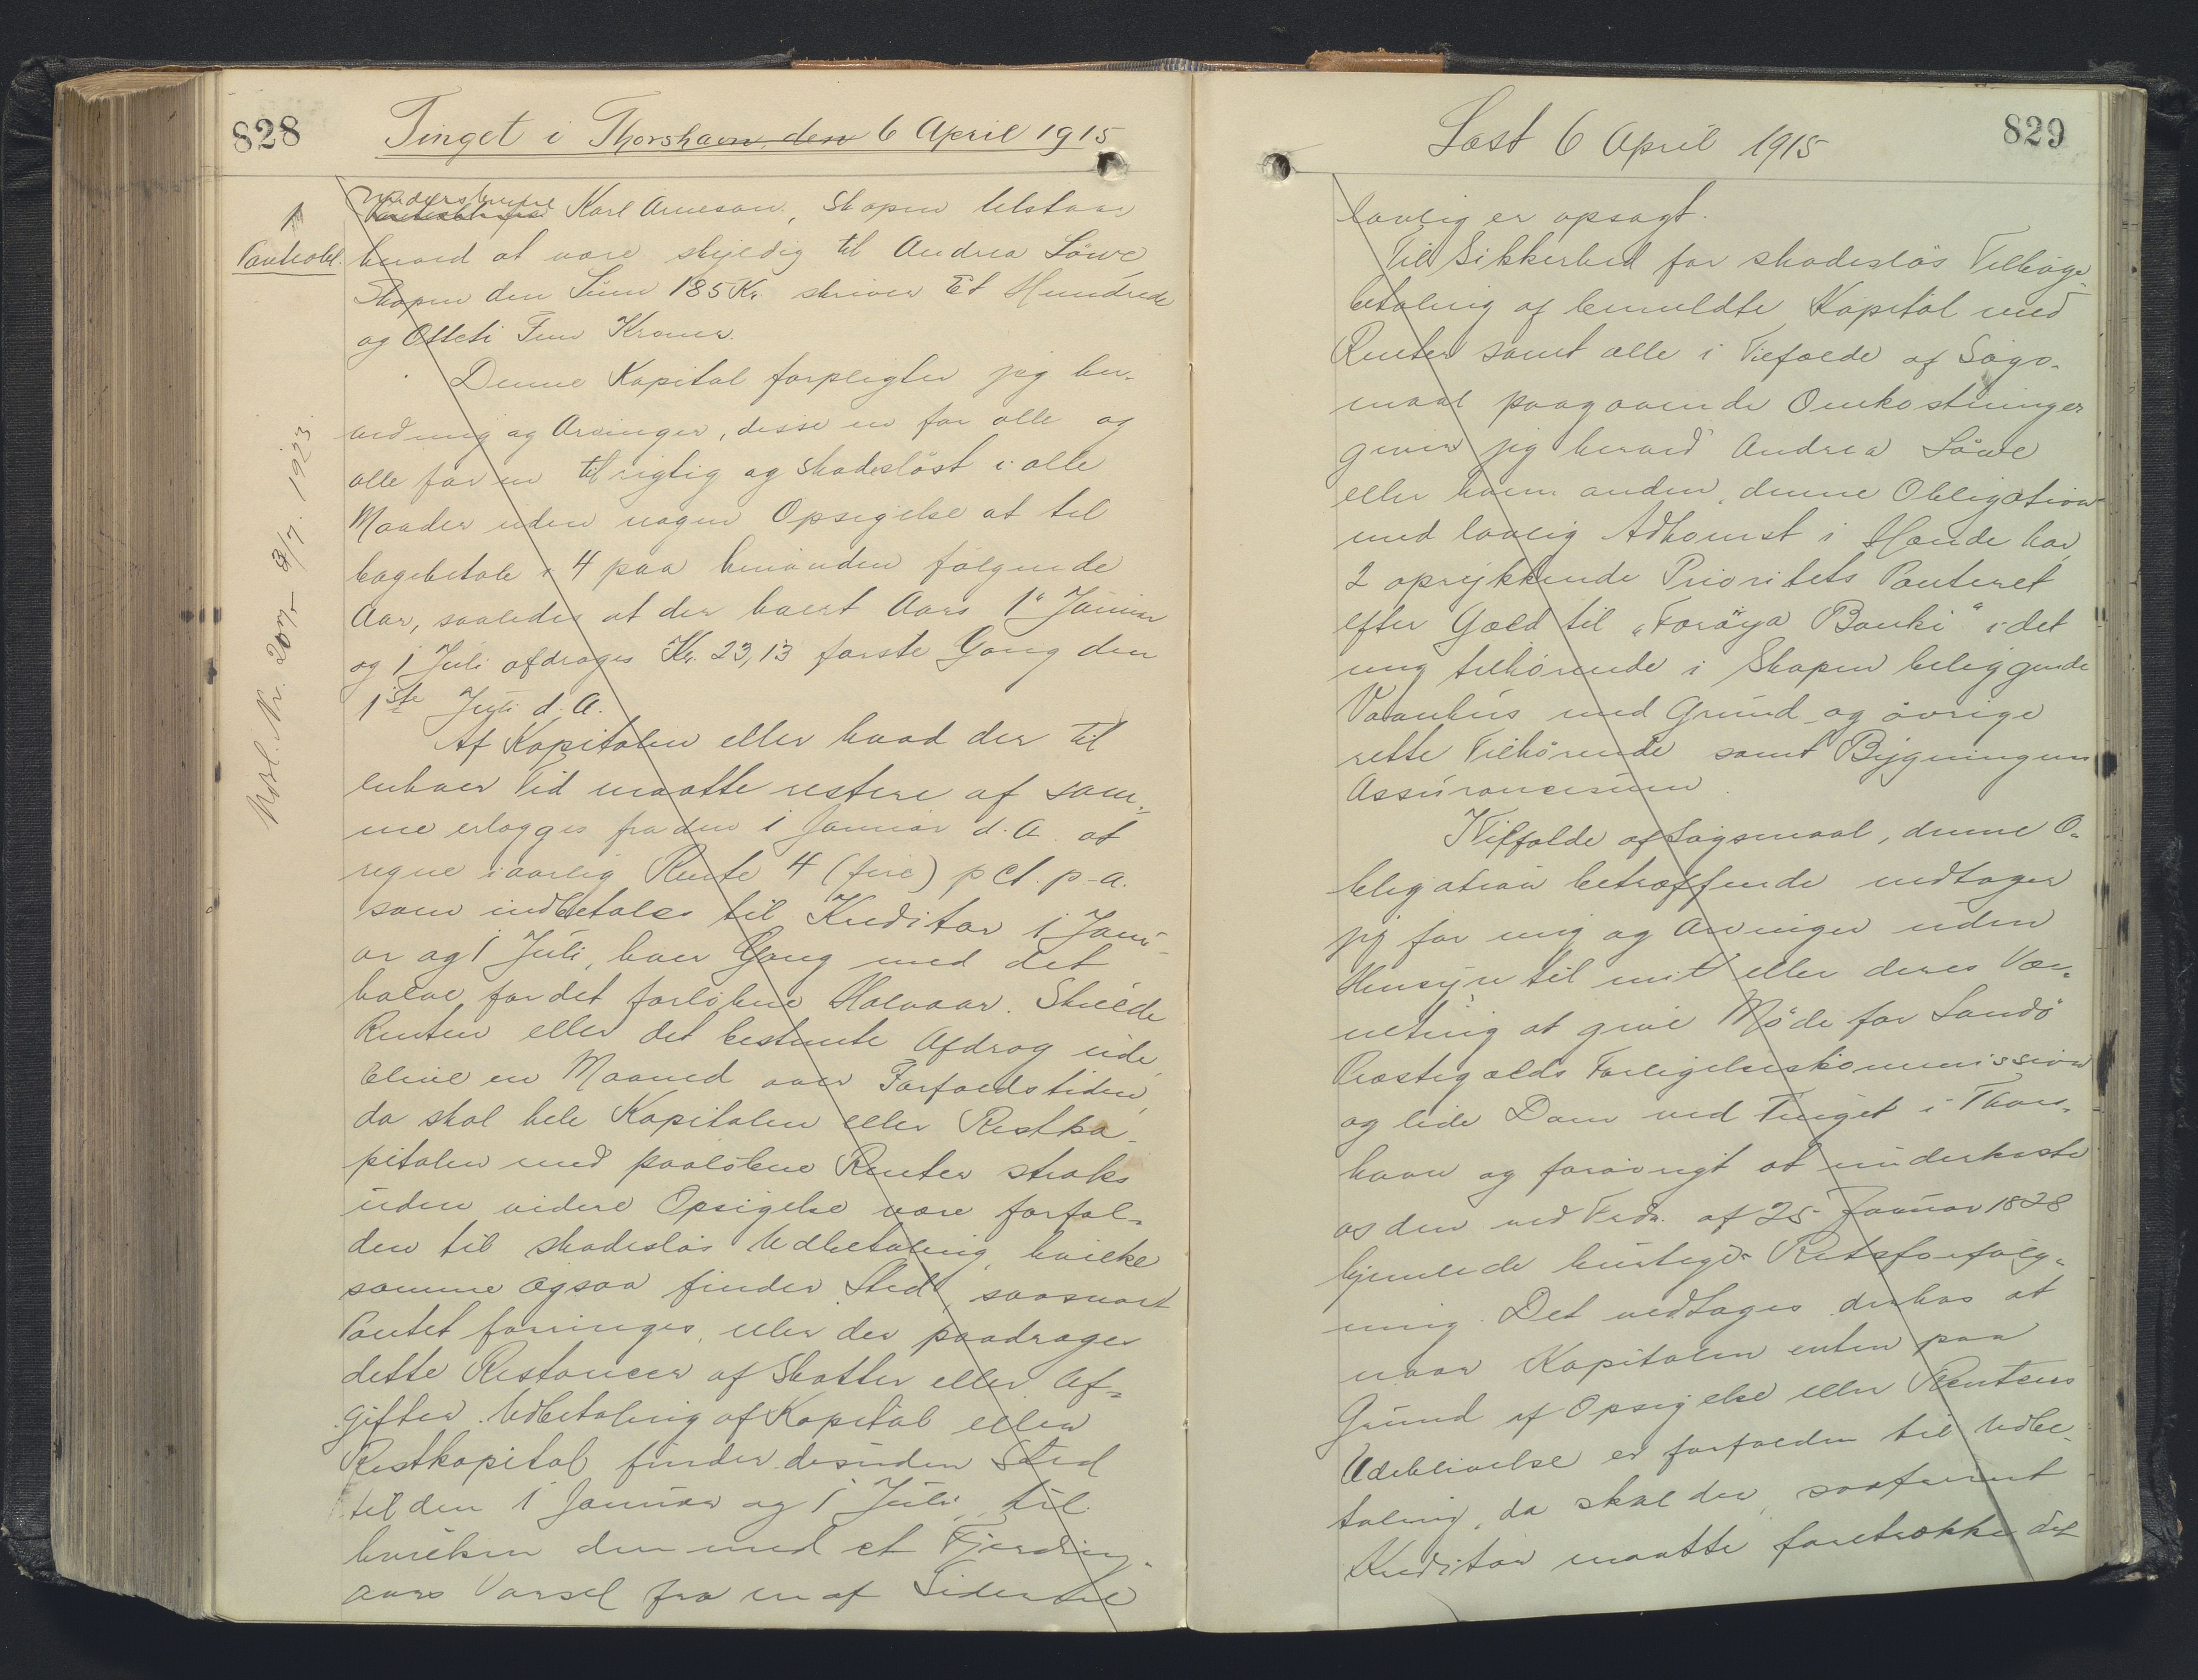 828
Tinget i Thorshavn, den 6 April 1915
Panteobl.
Udsl. Nr. 207 - 3/7. 1923
Underskrevne Karl Arneson, Skopen tilstaar
herved at være skyldig til Andrea Löwe
Skopen den Sum 185 Kr. skriver Et Hundrede
og Otteti Fem Kroner.
Denne Kapital forpligter jeg her-
ved mig og Arvinger, disse en for alle og
alle for en til rigtig og skadeslöst i alle
Maader uden nogen Opsigelse at til
bagebetale i 4 paa hinanden fölgende
Aar, saaledes at der hvert Aars 1' Januar
og 1 Juli afdrages Kr. 23,13 förste Gang den
1ste Juli d. A.
Af Kapitalen eller hvad der til
enhver Tid maatte restere af sam-
me erlægges fra den 1 Januar d. A. at
regne i aarlig Rente 4 (fire) pCt. p. a.
som indbetales til Kreditor 1 Janu-
ar og 1 Juli, hver Gang med det
halve for det forlöbne Halvaar. Skulde
Renten eller det bestemte Afdrag ude
blive en Maaned over Forfaldstiden,
da skal hele Kapitalen eller Restka-
pitalen med paalöbne Renter straks
uden videre Opsigelse være forfal-
den til skadeslös Udbetaling, hvilket
samme ogsaa finder Sted, saasnart
Pantet forringes, eller der paadrages
dette Restancer af Skatter eller Af-
gifter. Udbetaling af Kapital eller
Restkapital finder desuden Sted
til den 1 Januar og 1 Juli, til
hvilken den med et Fjerding-
aars Varsel fra en af Siderne
829
Læst 6 April 1915
lovlig er opsagt.
Til Sikkerhed for skadeslös Tilbage-
betaling af bemeldte Kapital med
Renter samt alle i Tilfælde af Sögs-
maal paagaaende Omkostninger
giver jeg herved Andrea Löwe
eller hvem anden, denne Obligation
med lovlig Adkomst i Hænde har,
2 oprykkende Prioritets Panteret
efter Gæld til "Foröya Banki" i det
mig tilhörende i Skopen beliggende
Vaanhus med Grund og övrige
rette Tilhörende samt Bygningens
Assurancesum.
I Tilfælde af Sögsmaal, denne O-
bligation betræffende vedtager
jeg for mig og Arvinger uden
Hensyn til mit eller deres Vær-
neting at give Möde for Sandö
Præstegælds Forligelseskommission
og lide Dom ved Tinget i Thors-
havn og forövrigt at underkaste
os den ved Frdn. af 25 Januar 1828
hjemlede hurtige Retsforfölg-
ning. Det vedtages derhos at
naar Kapitalen enten paa
Grund af Opsigelse eller Rentens
Udeblivelse er forfalden til Udbe-
taling, da skal der, saafremt
Kreditor maatte foretrække det